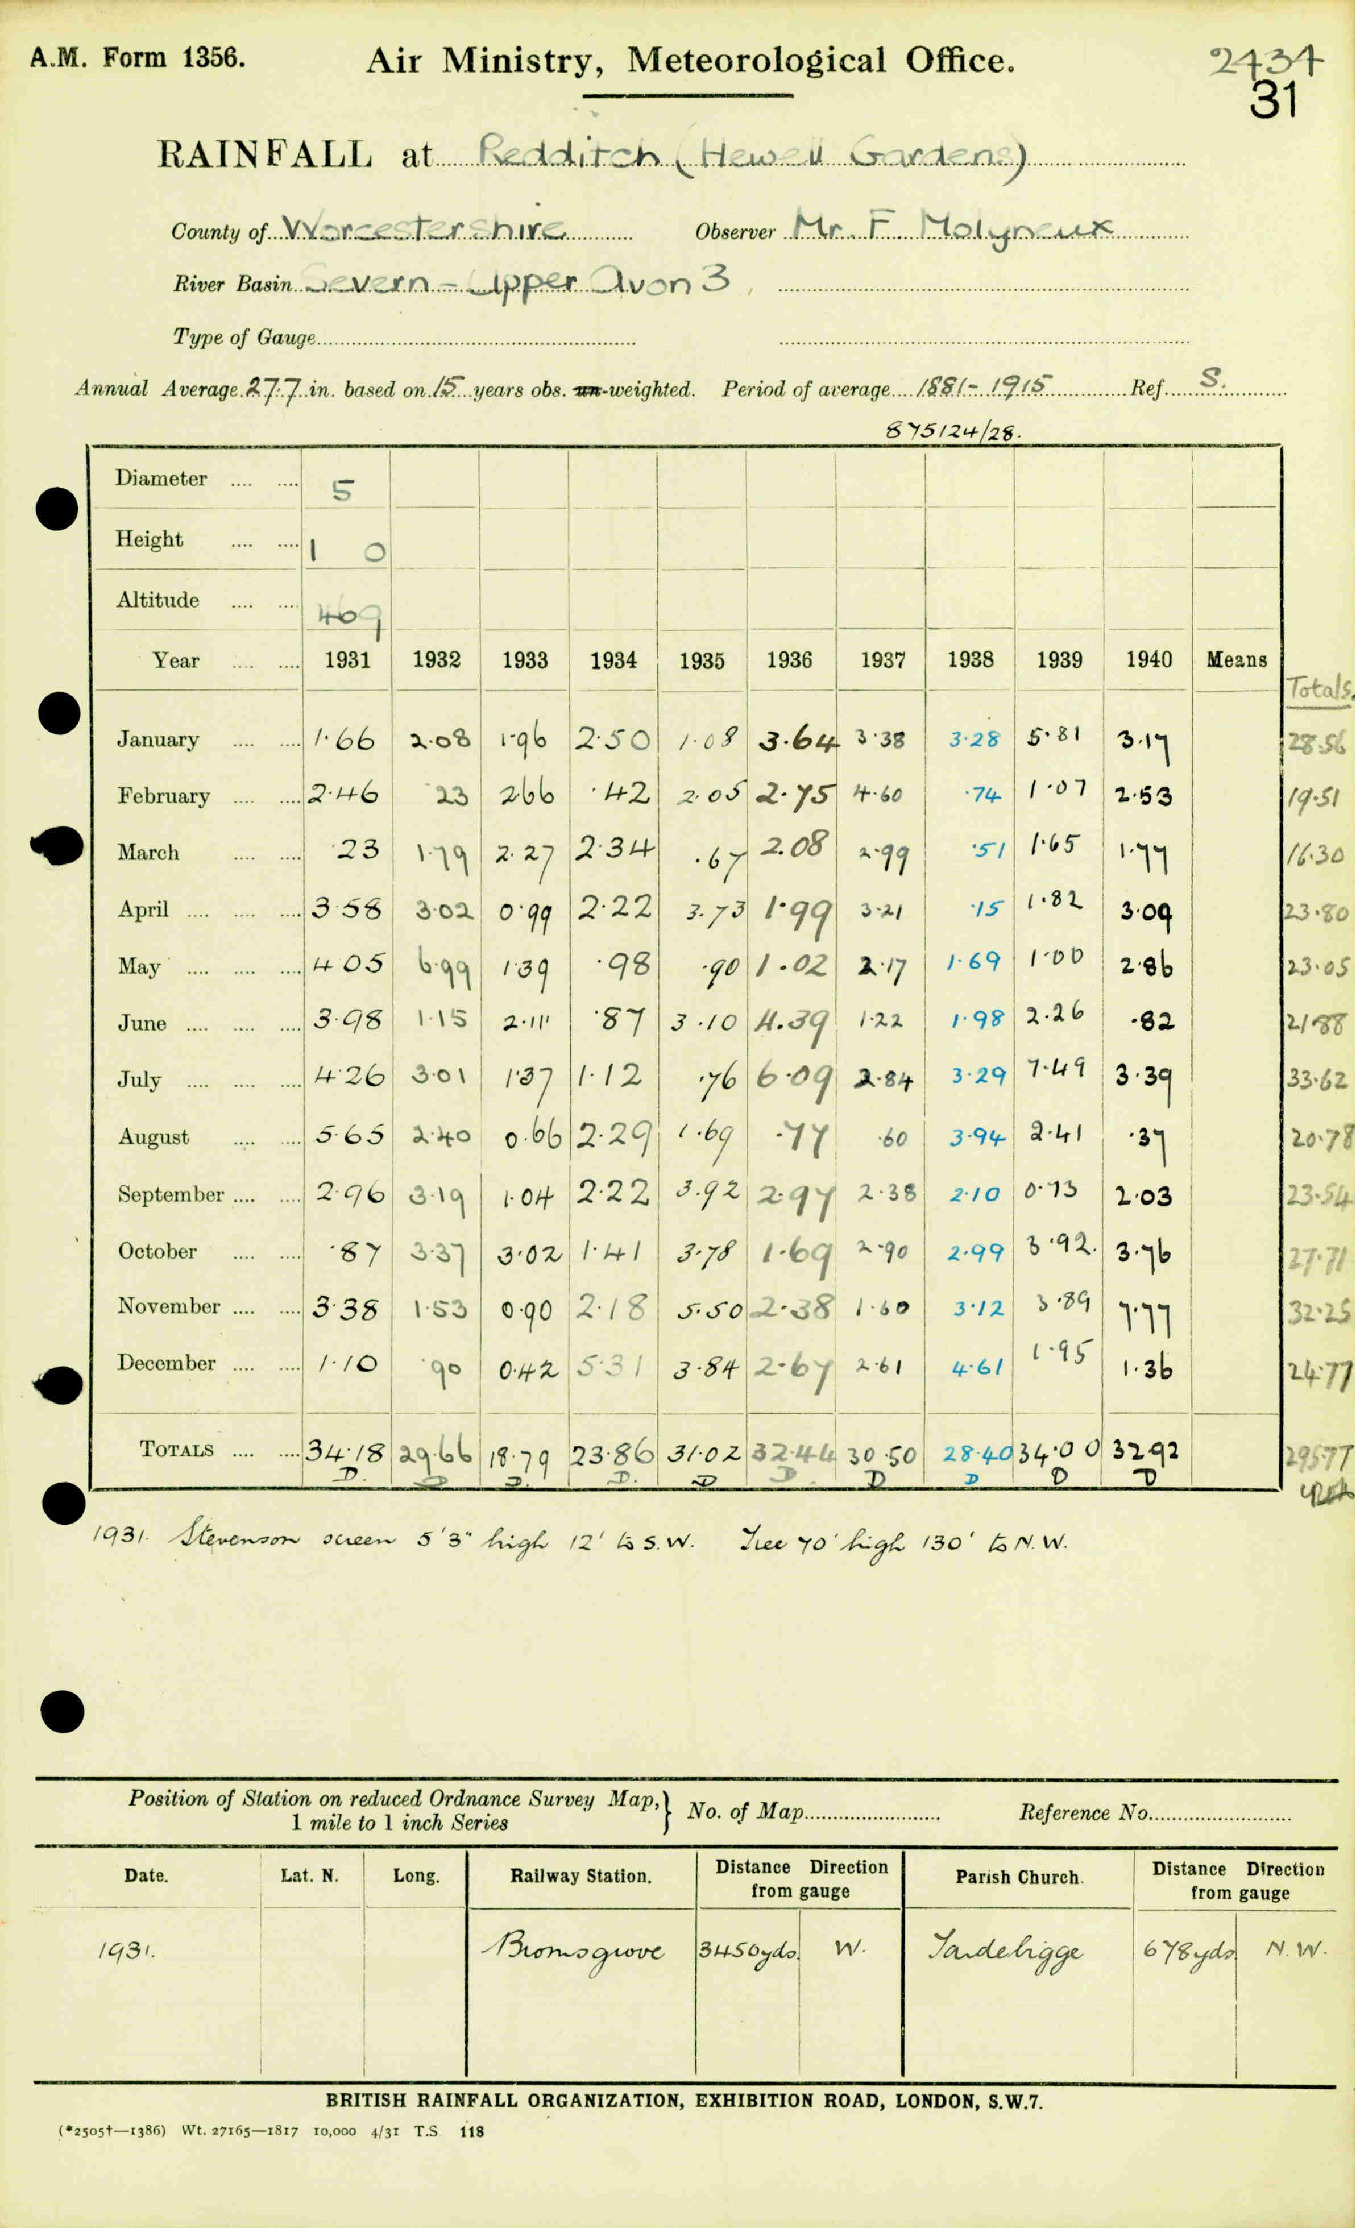 A.M. Form 1356. Air Ministry, Meteorological Office. 2434
31
RAINFALL at Redditch (Hewell Gardens)
County of Worcestershire Observer Mr. F. Molyneux
River Basin Severn - Upper Avon 3
Type of Gauge
Annual Average 27.7 in. based on 15 years obs. un-weighted. Period of average 1881-1915 Ref. S.
875124/28.
Diameter 5
Height 1 0
Altitude 469
Year 1931 1932 1933 1934 1935 1936 1937 1938 1939 1940 Means
Totals.
January 1.66 2.08 1.96 2.50 1.08 3.64 3.38 3.28 5.81 3.17 28.56
February 2.46 .23 2.66 .42 2.05 2.75 4.60 .74 1.07 2.53 19.51
March .23 1.79 2.27 2.34 .67 2.08 2.99 .51 1.65 1.77 16.30
April 3.58 3.02 0.99 2.22 3.73 1.99 3.21 .15 1.82 3.09 23.80
May 4.05 6.99 1.39 .98 .90 1.02 2.17 1.69 1.00 2.86 23.05
June 3.98 1.15 2.11 .87 3.10 4.39 1.22 1.98 2.26 .82 21.88
July 4.26 3.01 1.37 1.12 .76 6.09 2.84 3.29 7.49 3.39 33.62
August 5.65 2.40 0.66 2.29 1.69 .77 .60 3.94 2.41 .37 20.78
September 2.96 3.19 1.04 2.22 3.92 2.97 2.38 2.10 0.73 2.03 23.54
October .87 3.37 3.02 1.41 3.78 1.69 2.90 2.99 3.92. 3.76 27.71
November 3.38 1.53 0.90 2.18 5.50 2.38 1.60 3.12 3.89 7.77 32.25
December 1.10 .90 0.42 5.31 3.84 2.67 2.61 4.61 1.95 1.36 24.77
TOTALS 34.18 29.66 18.79 23.86 31.02 32.44 30.50 28.40 34.00 32.92 295.77
D. D D. D. D D. D D D D
1931. Stevenson screen 5'3" high 12' to S.W. Tree 70' high 130' to N.W.
Position of Station on reduced Ordnance Survey Map,
1 mile to 1 inch Series } No. of Map Reference No.
Date. Lat. N. Long. Railway Station. Distance Direction from gauge Parish Church. Distance Direction from gauge
1931. Bromsgrove 3450yds. W. Tardebigge 678yds N.W.
BRITISH RAINFALL ORGANIZATION, EXHIBITION ROAD, LONDON, S.W.7.
(*2505†—1386) Wt. 27165—1817 10,000 4/31 T.S. 118